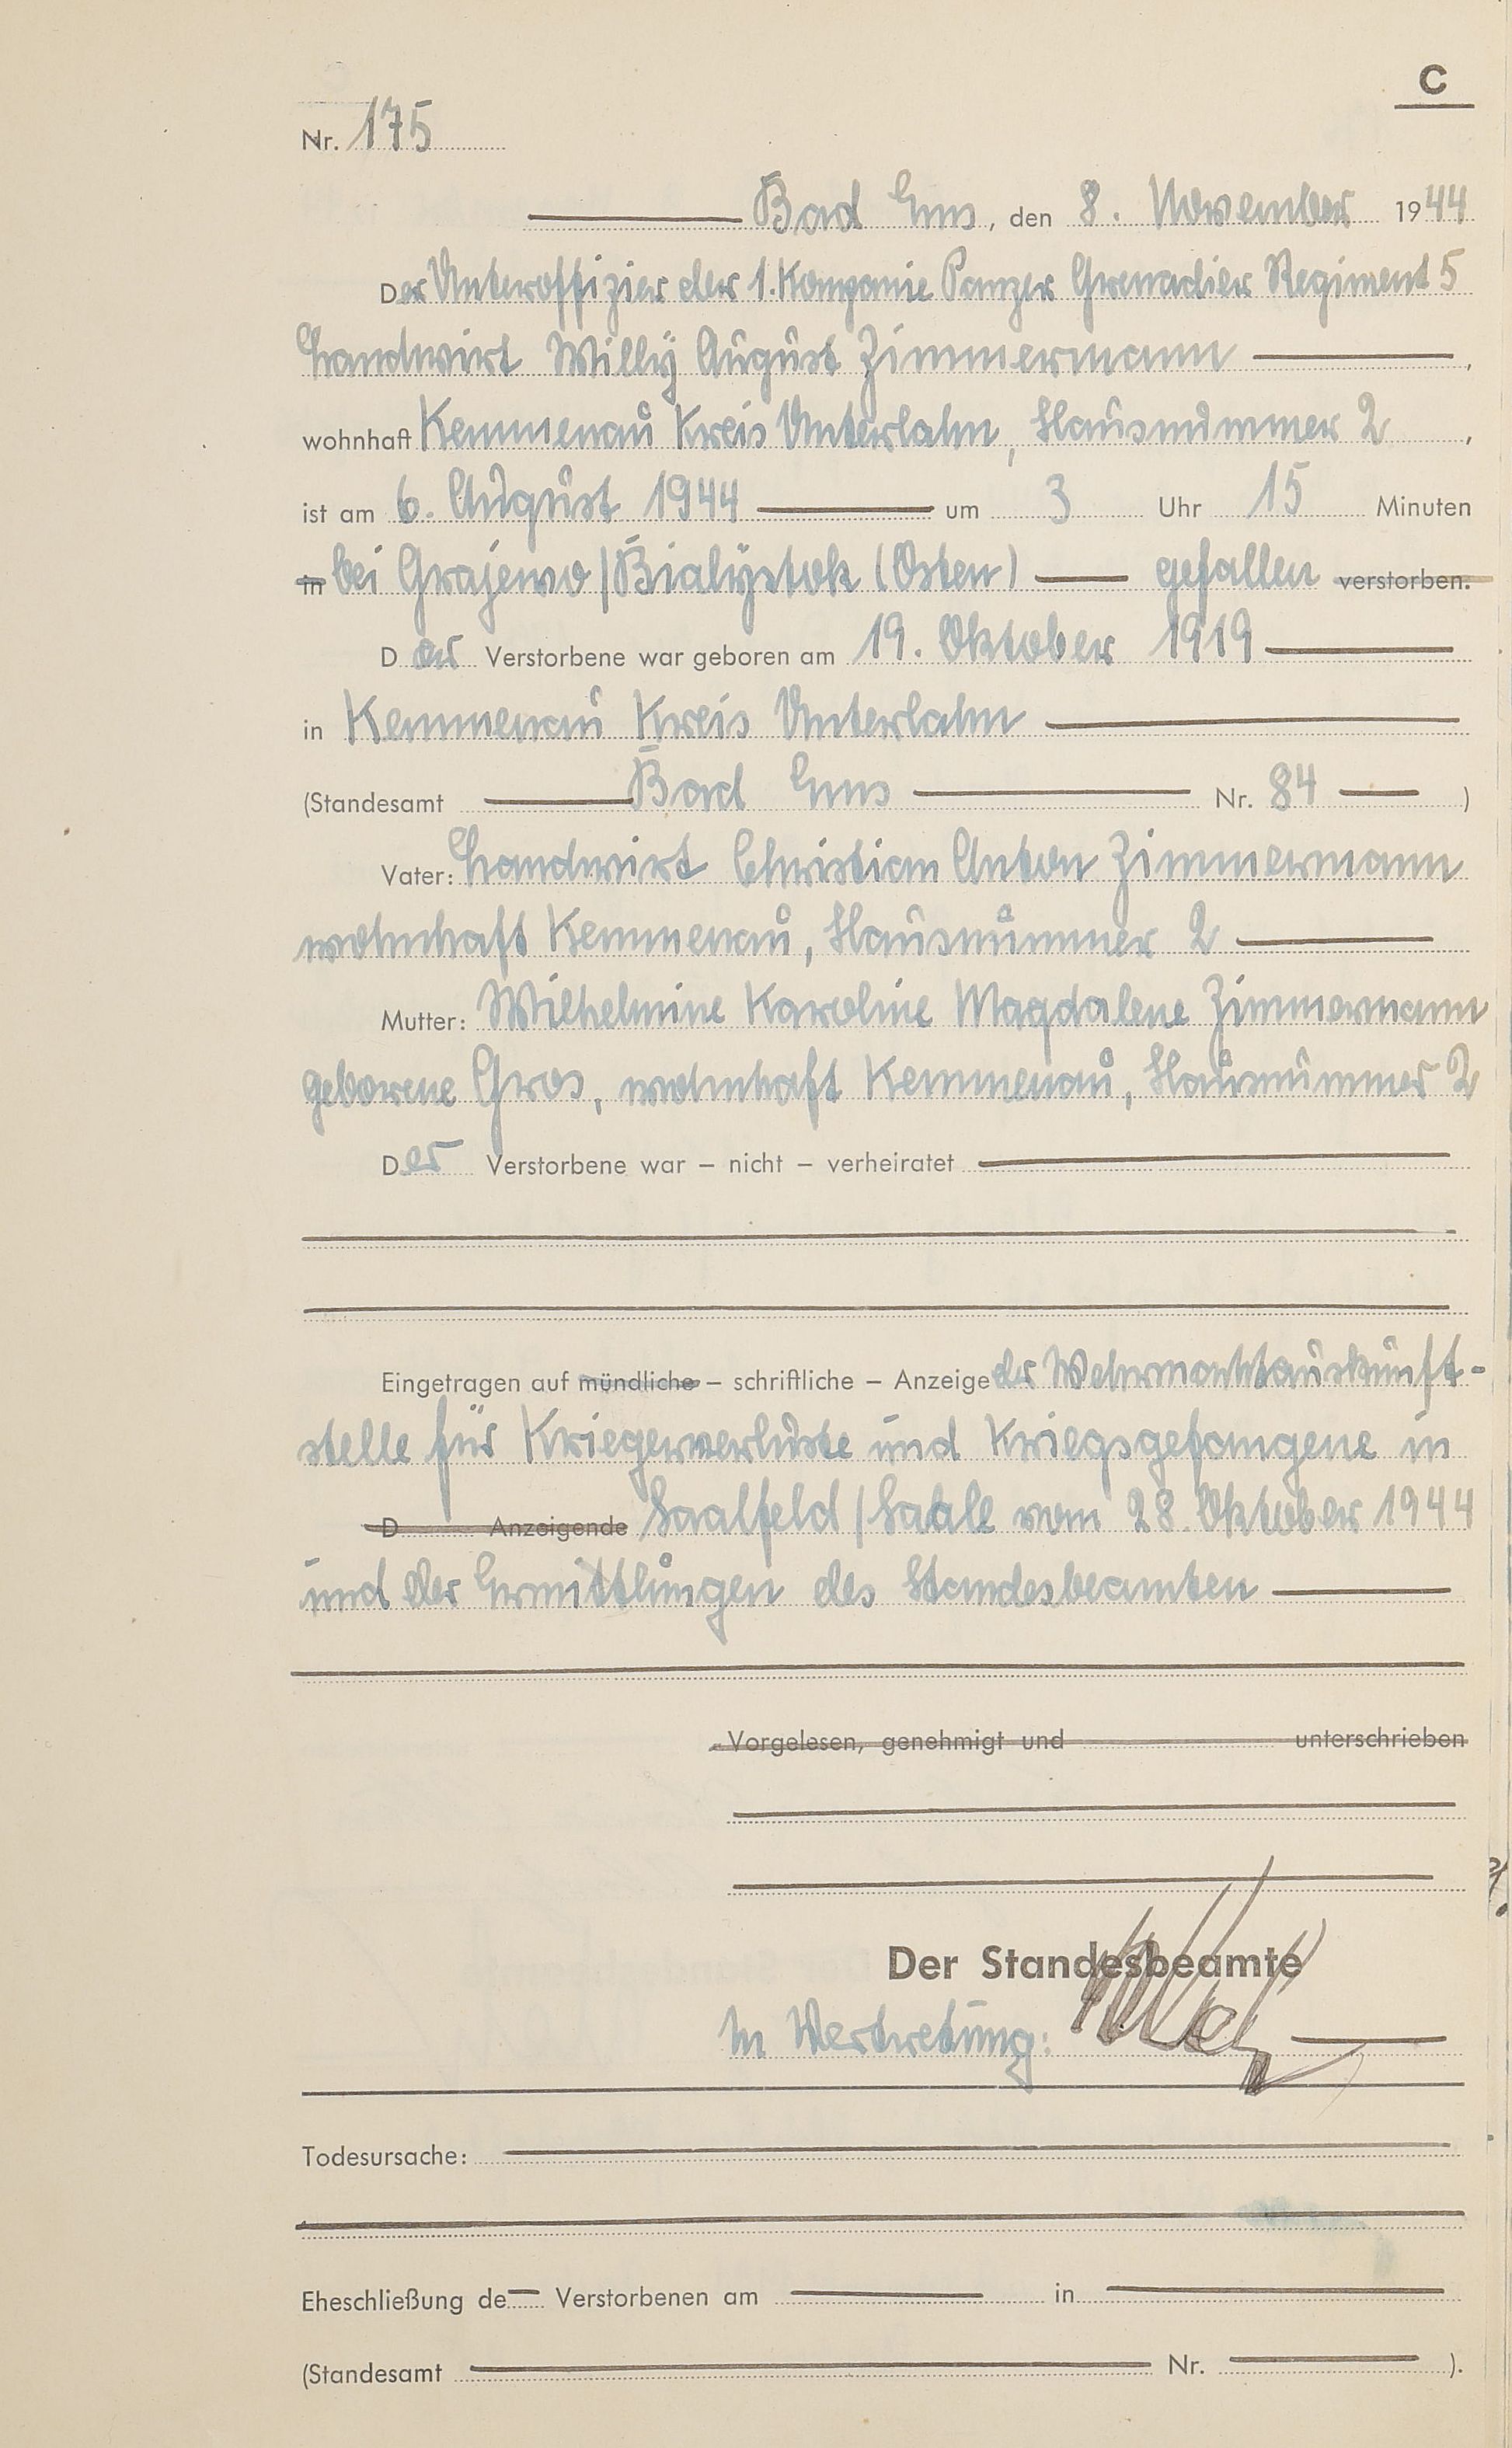 C
Nr. 175
Bad Ems, den 8. November 1944
Der Unteroffizier der 1. Kompanie Panzer Grenadier Regiment 5
Landwirt Willy August Zimmermann,
wohnhaft Kemmenau Kreis Unterlahn, Hausnummer 2,
ist am 6. August 1944 um 3 Uhr 15 Minuten
in bei Grajewo/Bialystok (Osten) gefallen verstorben.
Der Verstorbene war geboren am 19. Oktober 1919
in Kemmenau Kreis Unterlahn
(Standesamt Bad Ems Nr. 84)
Vater: Landwirt Christian Anton Zimmermann
wohnhaft Kemmenau, Hausnummer 2
Mutter: Wilhelmine Karoline Magdalene Zimmermann
geborene Gros, wohnhaft Kemmenau, Hausnummer 2
Der Verstorbene war – nicht – verheiratet
Eingetragen auf mündliche – schriftliche – Anzeige der Wehrmachtauskunft-
stelle für Kriegerverluste und Kriegsgefangene in
D Anzeigende Saalfeld/Saale vom 28. Oktober 1944
und der Ermittlungen des Standesbeamten
Vorgelesen, genehmigt und unterschrieben
Der Standesbeamte
In Vertretung:
Todesursache:
Eheschließung de Verstorbenen am in
(Standesamt Nr. ).